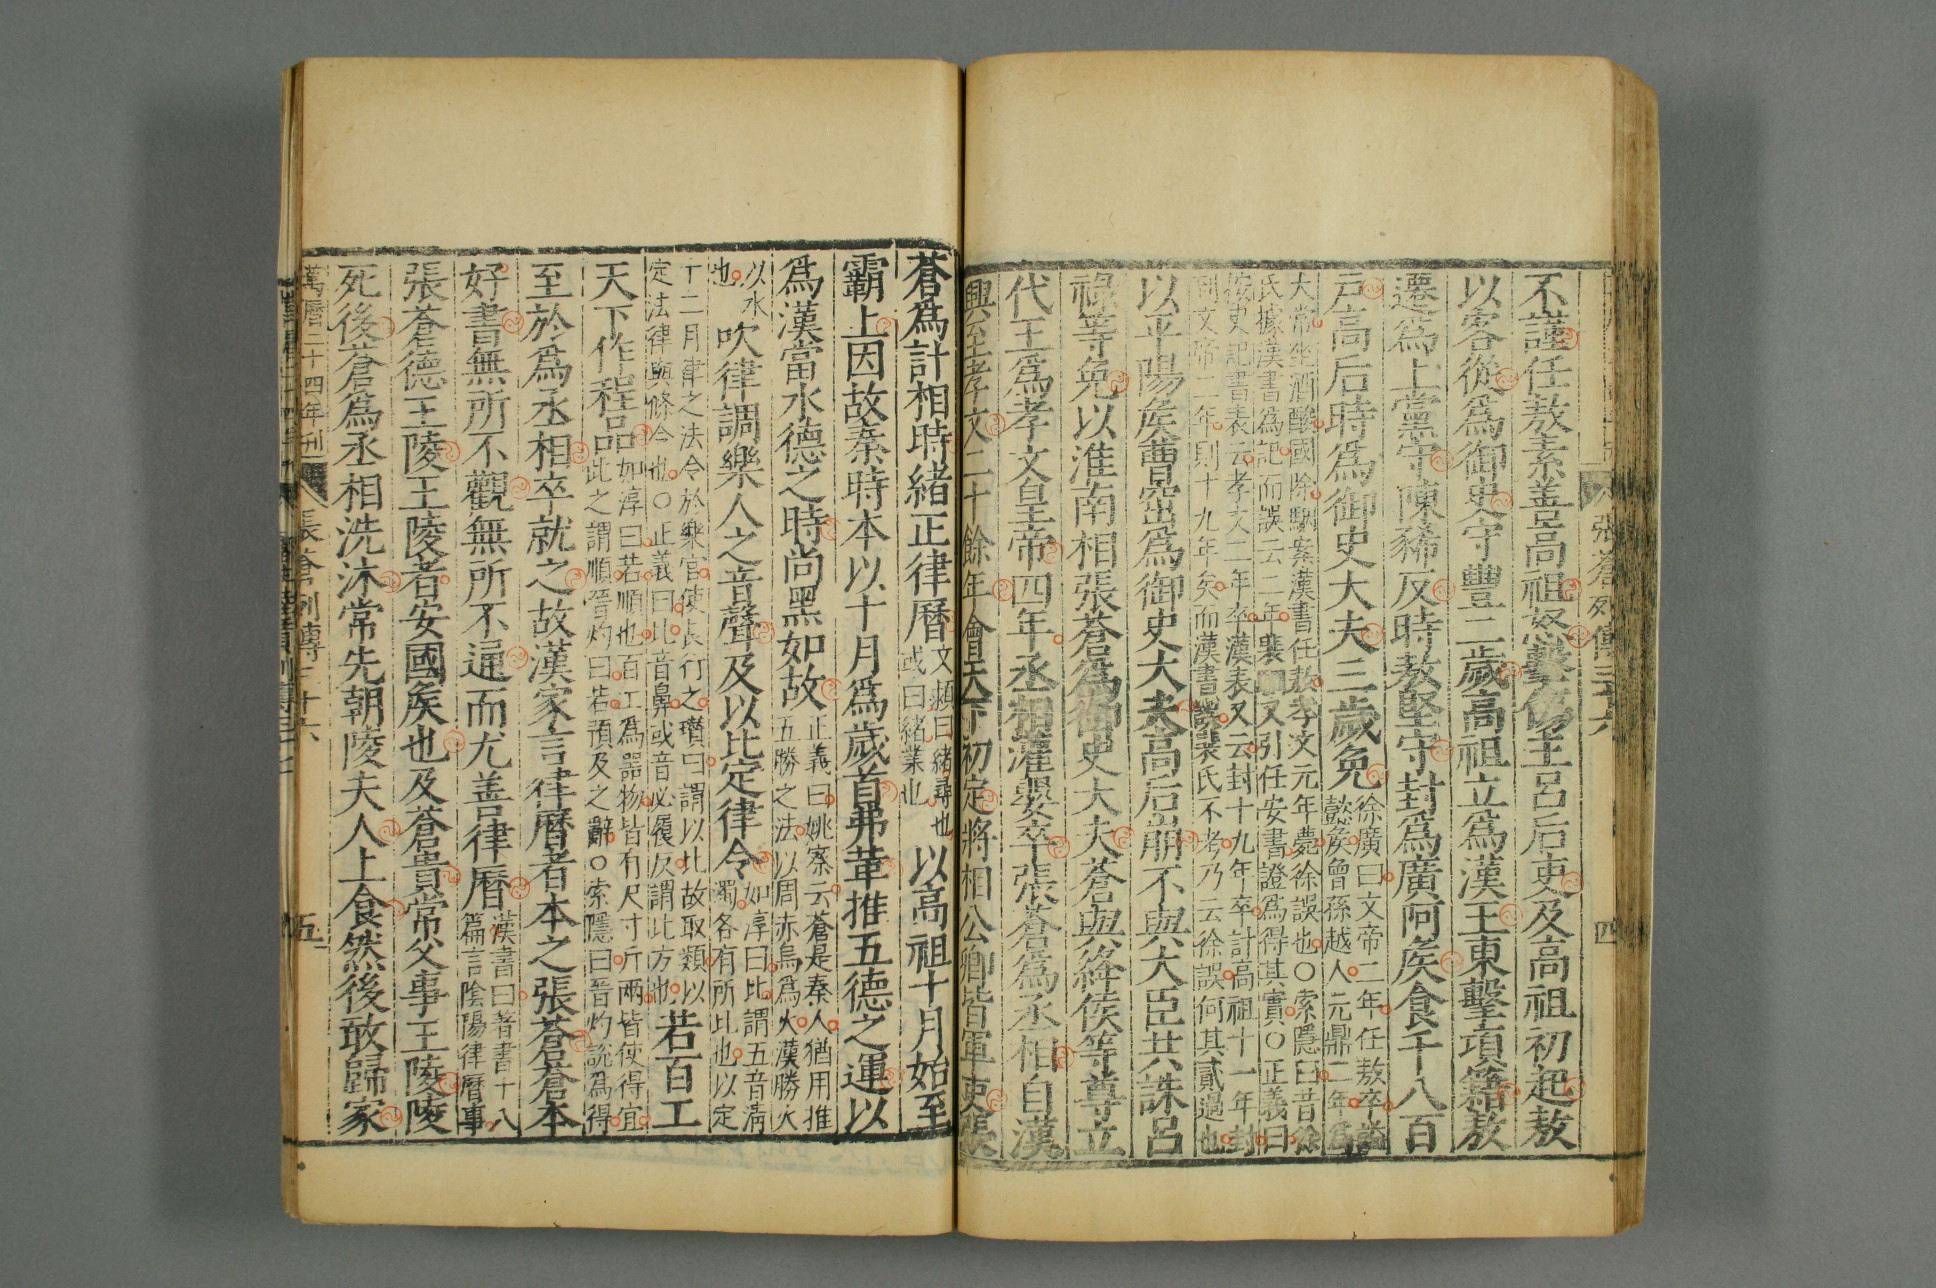 不謹任敖素善高祖怒擊傷主呂后吏及高祖初起敖
以客從爲御史守豐二歲高祖立爲漢王東擊項籍敖
遷爲上黨守陳豨反時敖堅守封爲廣阿矦食千八百
戸高后時爲御史大夫三歲免
徐廣曰文帝二年任敖卒諡
懿矦曾孫越人元鼎二年爲
大常坐酒酸國除駰案漢書任敖孝文元年薨徐誤也○索隱曰昔徐
氏據漢書爲記而誤云二年裴駰又引任安書證爲得其實○正義曰
按史記書表云孝文二年卒漢表又云封十九年卒計高祖十一年封
到文帝二年則十九年矣而漢書誤裴氏不考乃云徐誤何其貳過也
以平陽矦曹窋爲御史大夫高后崩不與大臣共誅呂
祿等免以淮南相張蒼爲御史大夫蒼與絳侯等尊立
代王爲孝文皇帝四年丞相灌嬰卒張蒼爲丞相自漢
興至孝文二十餘年會天下初定將相公卿皆軍吏張
蒼爲計相時緒正律曆
文頴曰緒尋也
或曰緒業也
以高祖十月始至
霸上因故秦時本以十月爲歲首弗革推五德之運以
爲漢當水德之時尚黑如故
正義曰姚察云蒼是秦人猶用推
五勝之法以周赤烏爲火漢勝火
以水
也
吹律調樂人之音聲及以比定律令
如淳曰比謂五音淸
濁各有所比也以定
十二月律之法令於樂官使長行之瓚曰謂以比故取類以
定法律與條令也○正義曰比音鼻或音必履反謂比方也
若百工
天下作程品
如淳曰若順也百工爲器物皆有尺寸斤兩皆使得宜
此之謂順晉灼曰若預及之辭○索隱曰晉灼說爲得
至於爲丞相卒就之故漢家言律曆者本之張蒼蒼本
好書無所不觀無所不通而尤善律曆
漢書曰著書十八
篇言陰陽律曆事
張蒼德王陵王陵者安國矦也及蒼貴常父事王陵陵
死後蒼爲丞相洗沐常先朝陵夫人上食然後敢歸家
萬曆二十四年刊 張蒼列傳三十六 五
張蒼列傳三十六 四